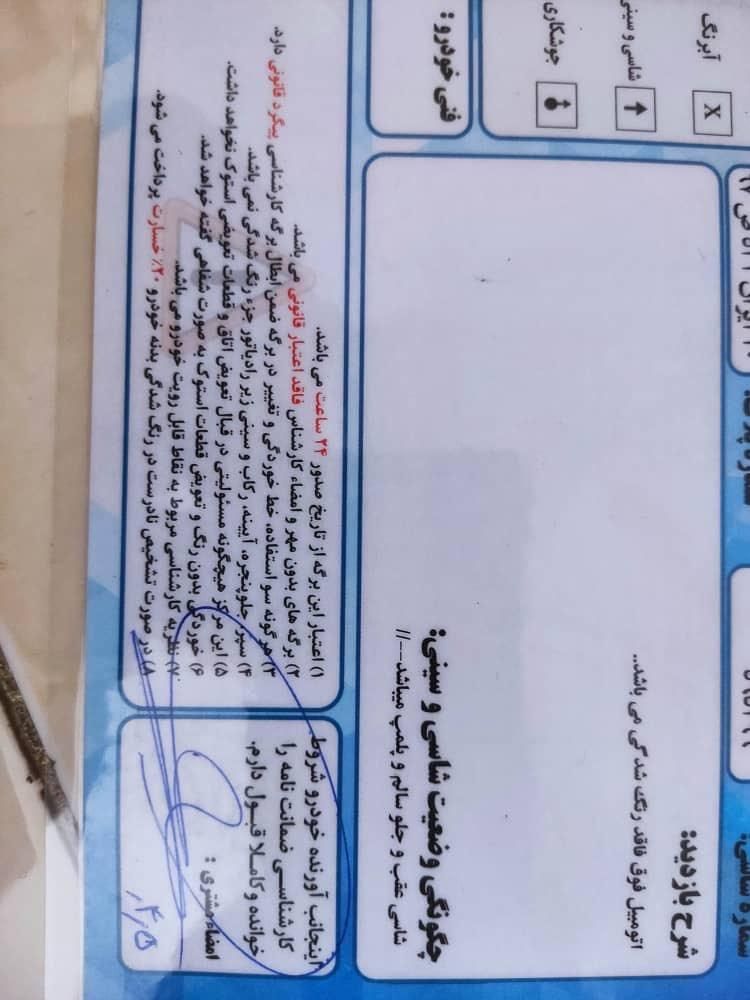 آبرنگ X
شاسی و سینی
جوشکاری
شماره شاسی:
شرح بازدید:
اتومبیل فوق فاقد رنگ شدگی می باشد..
چگونگی وضعیت شاسی و سینی:
شاسی عقب و جلو سالم و پلمپ میباشد--//
فنی خودرو:
۱) اعتبار این برگه از تاریخ صدور ۲۴ ساعت می باشد.
۲) برگه های بدون مهر و امضاء کارشناس فاقد اعتبار قانونی می باشد.
۳) هرگونه سو استفاده، خط خوردگی و تغییر در برگه ضمن ابطال برگه کارشناسی پیگرد قانونی دارد.
۴) سپر، جلوپنجره، آیینه، رکاب و سینی زیر رادیاتور جزء رنگ شدگی نمی باشد.
۵) این مرکز هیچگونه مسئولیتی در قبال تعویض اتاق و قطعات تعویضی استوک نخواهد داشت.
۶) خوردگی بدون رنگ و تعویض قطعات استوک به صورت شفاهی گفته خواهد شد.
۷) نظریه کارشناسی مربوط به نقاط قابل رویت خودرو می باشد.
۸) در صورت تشخیص نادرست در رنگ شدگی بدنه خودرو ۲۰٪ خسارت پرداخت می شود.
اینجانب آورنده خودرو شروط
کارشناسی ضمانت نامه را
خوانده و کاملا قبول دارم.
امضاء مشتری: